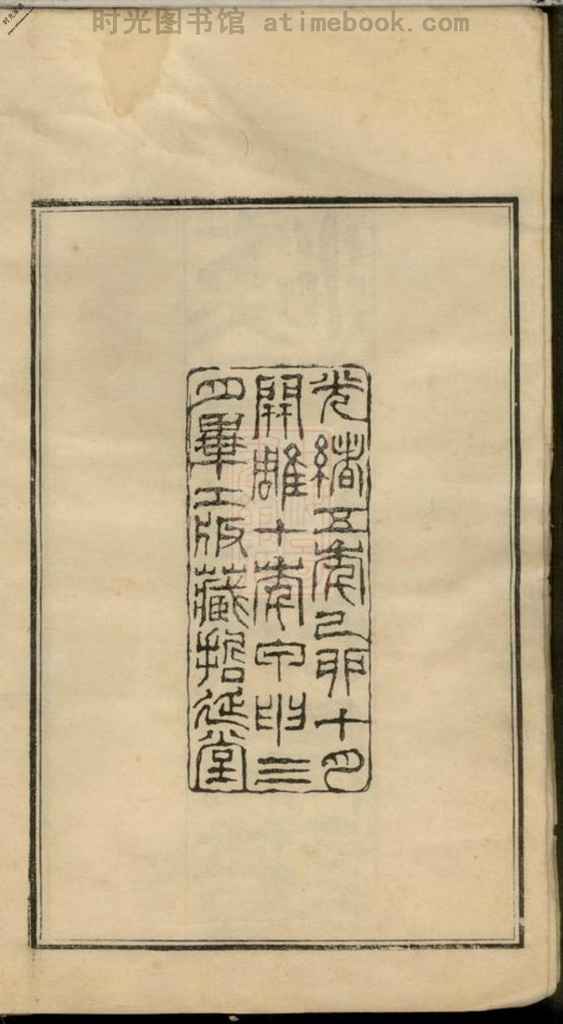 时光图书馆 atimebook.com
光緒五年己卯十月
開雕十年甲申三
月畢工版藏延堂